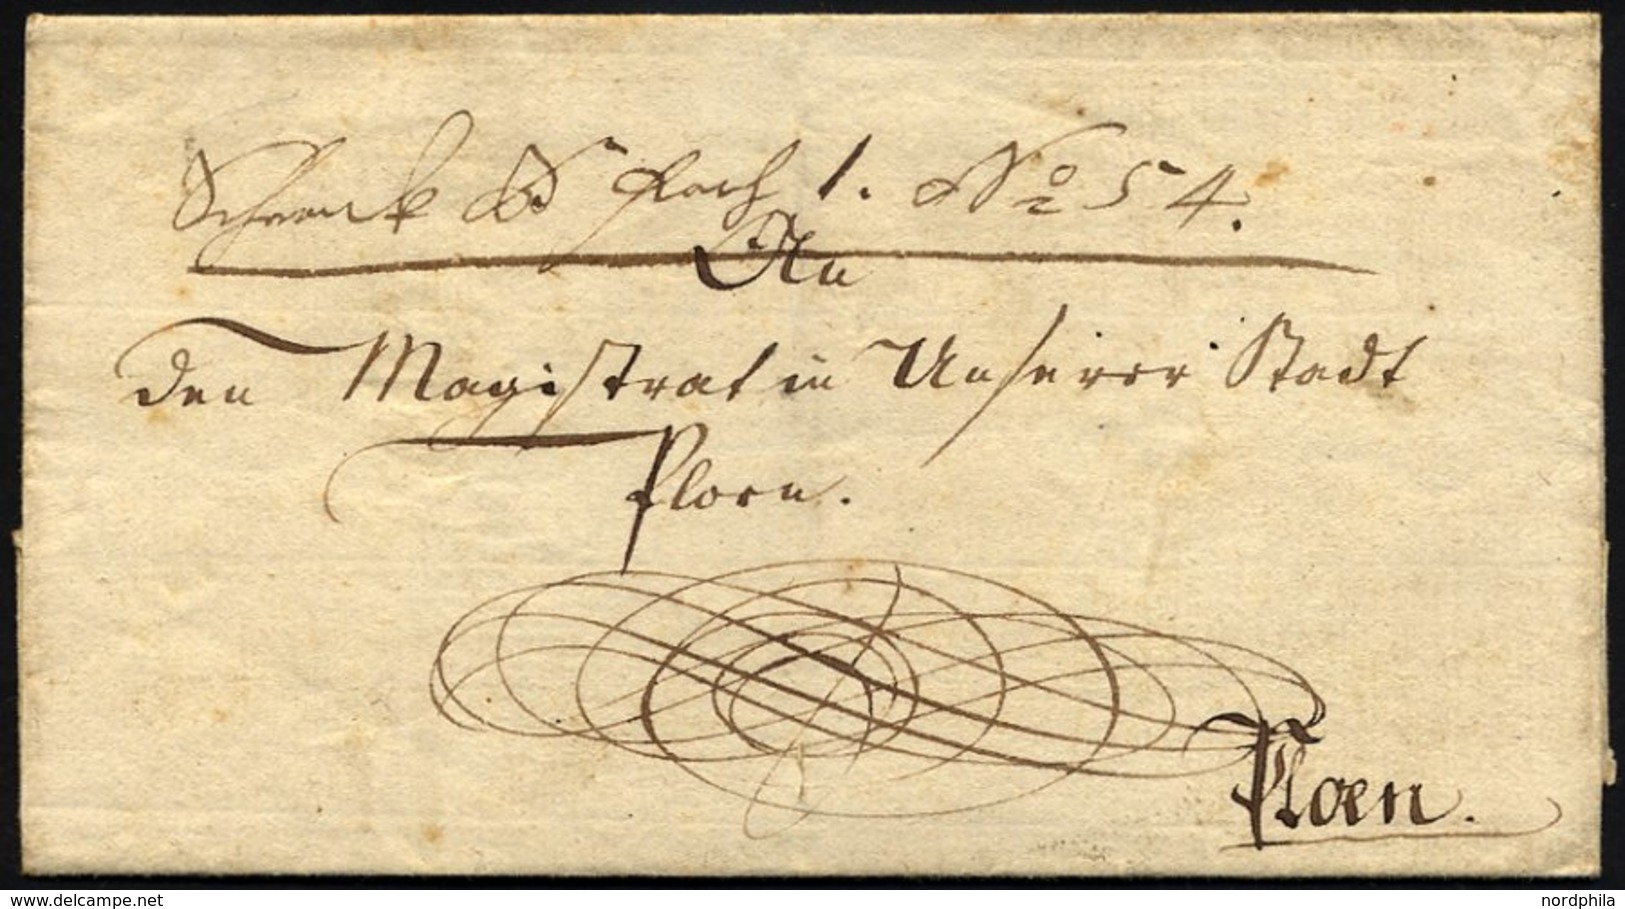 Schrank B Fach 1. No 54.
An
den Magistrat in Unserer Stadt
Ploen.
Ploen.
delcampe.net
nordphila